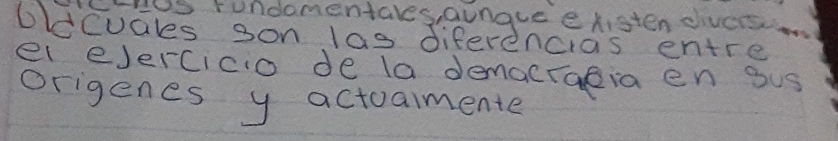 fundamentales, aunque existen
cuales son las diferencias entre
el ejercicio de la democracia en sus
Origenes y actualmente